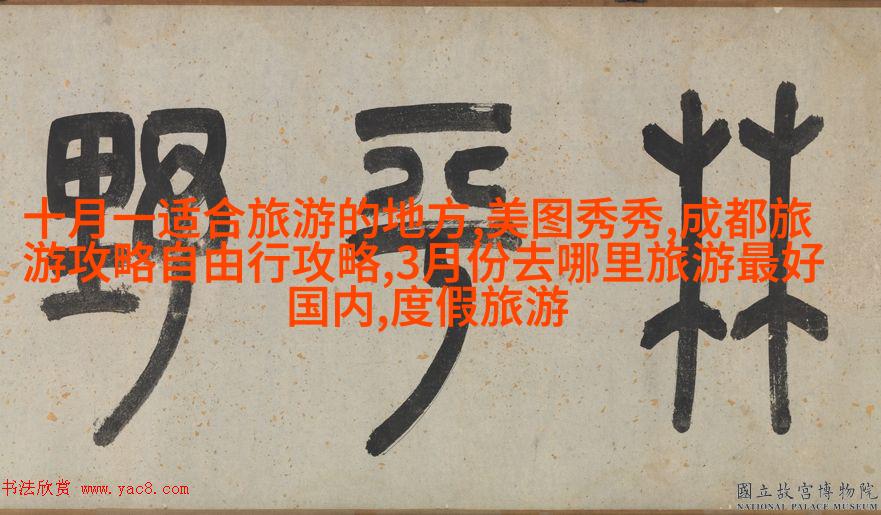 林平野
十月一适合旅游的地方,美图秀秀,成都旅
游攻略自由行攻略,3月份去哪里旅游最好
国内,度假旅游
书法欣赏 www.yac8.com
國立故宮博物院
NATIONAL PALACE MUSEUM